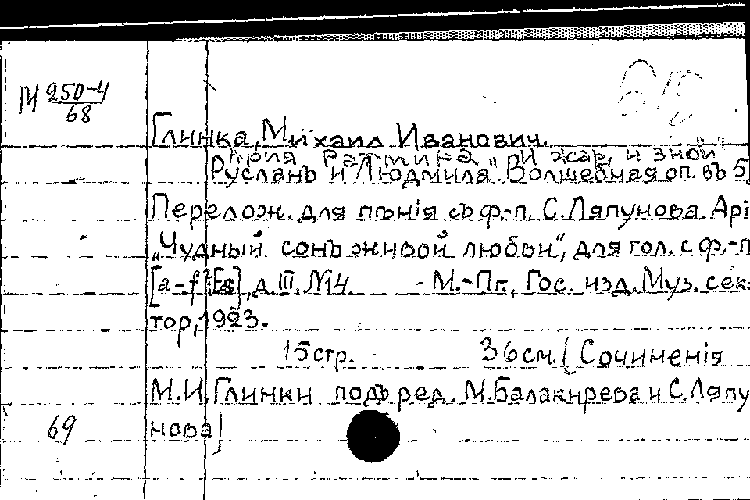 М 250-4
68
Глинка, Михаил Иванович.
Ария Ратмира „И жар, и зной
Русланъ и Людмила. Волшебная оп. въ 5
Перелож. для пѣнія съ ф.-п. С. Ляпунова. Арі
„Чудный сонъ живой любви", для гол. с ф.-п
[a-f² Es], д. III. №14. - М.-Пг., Гос. изд. Муз. сек-
тор, 1923.
15 стр. 36 см. [Сочиненія
М.И. Глинки подъ ред. М. Балакирева и С. Ляпу
нова]
69